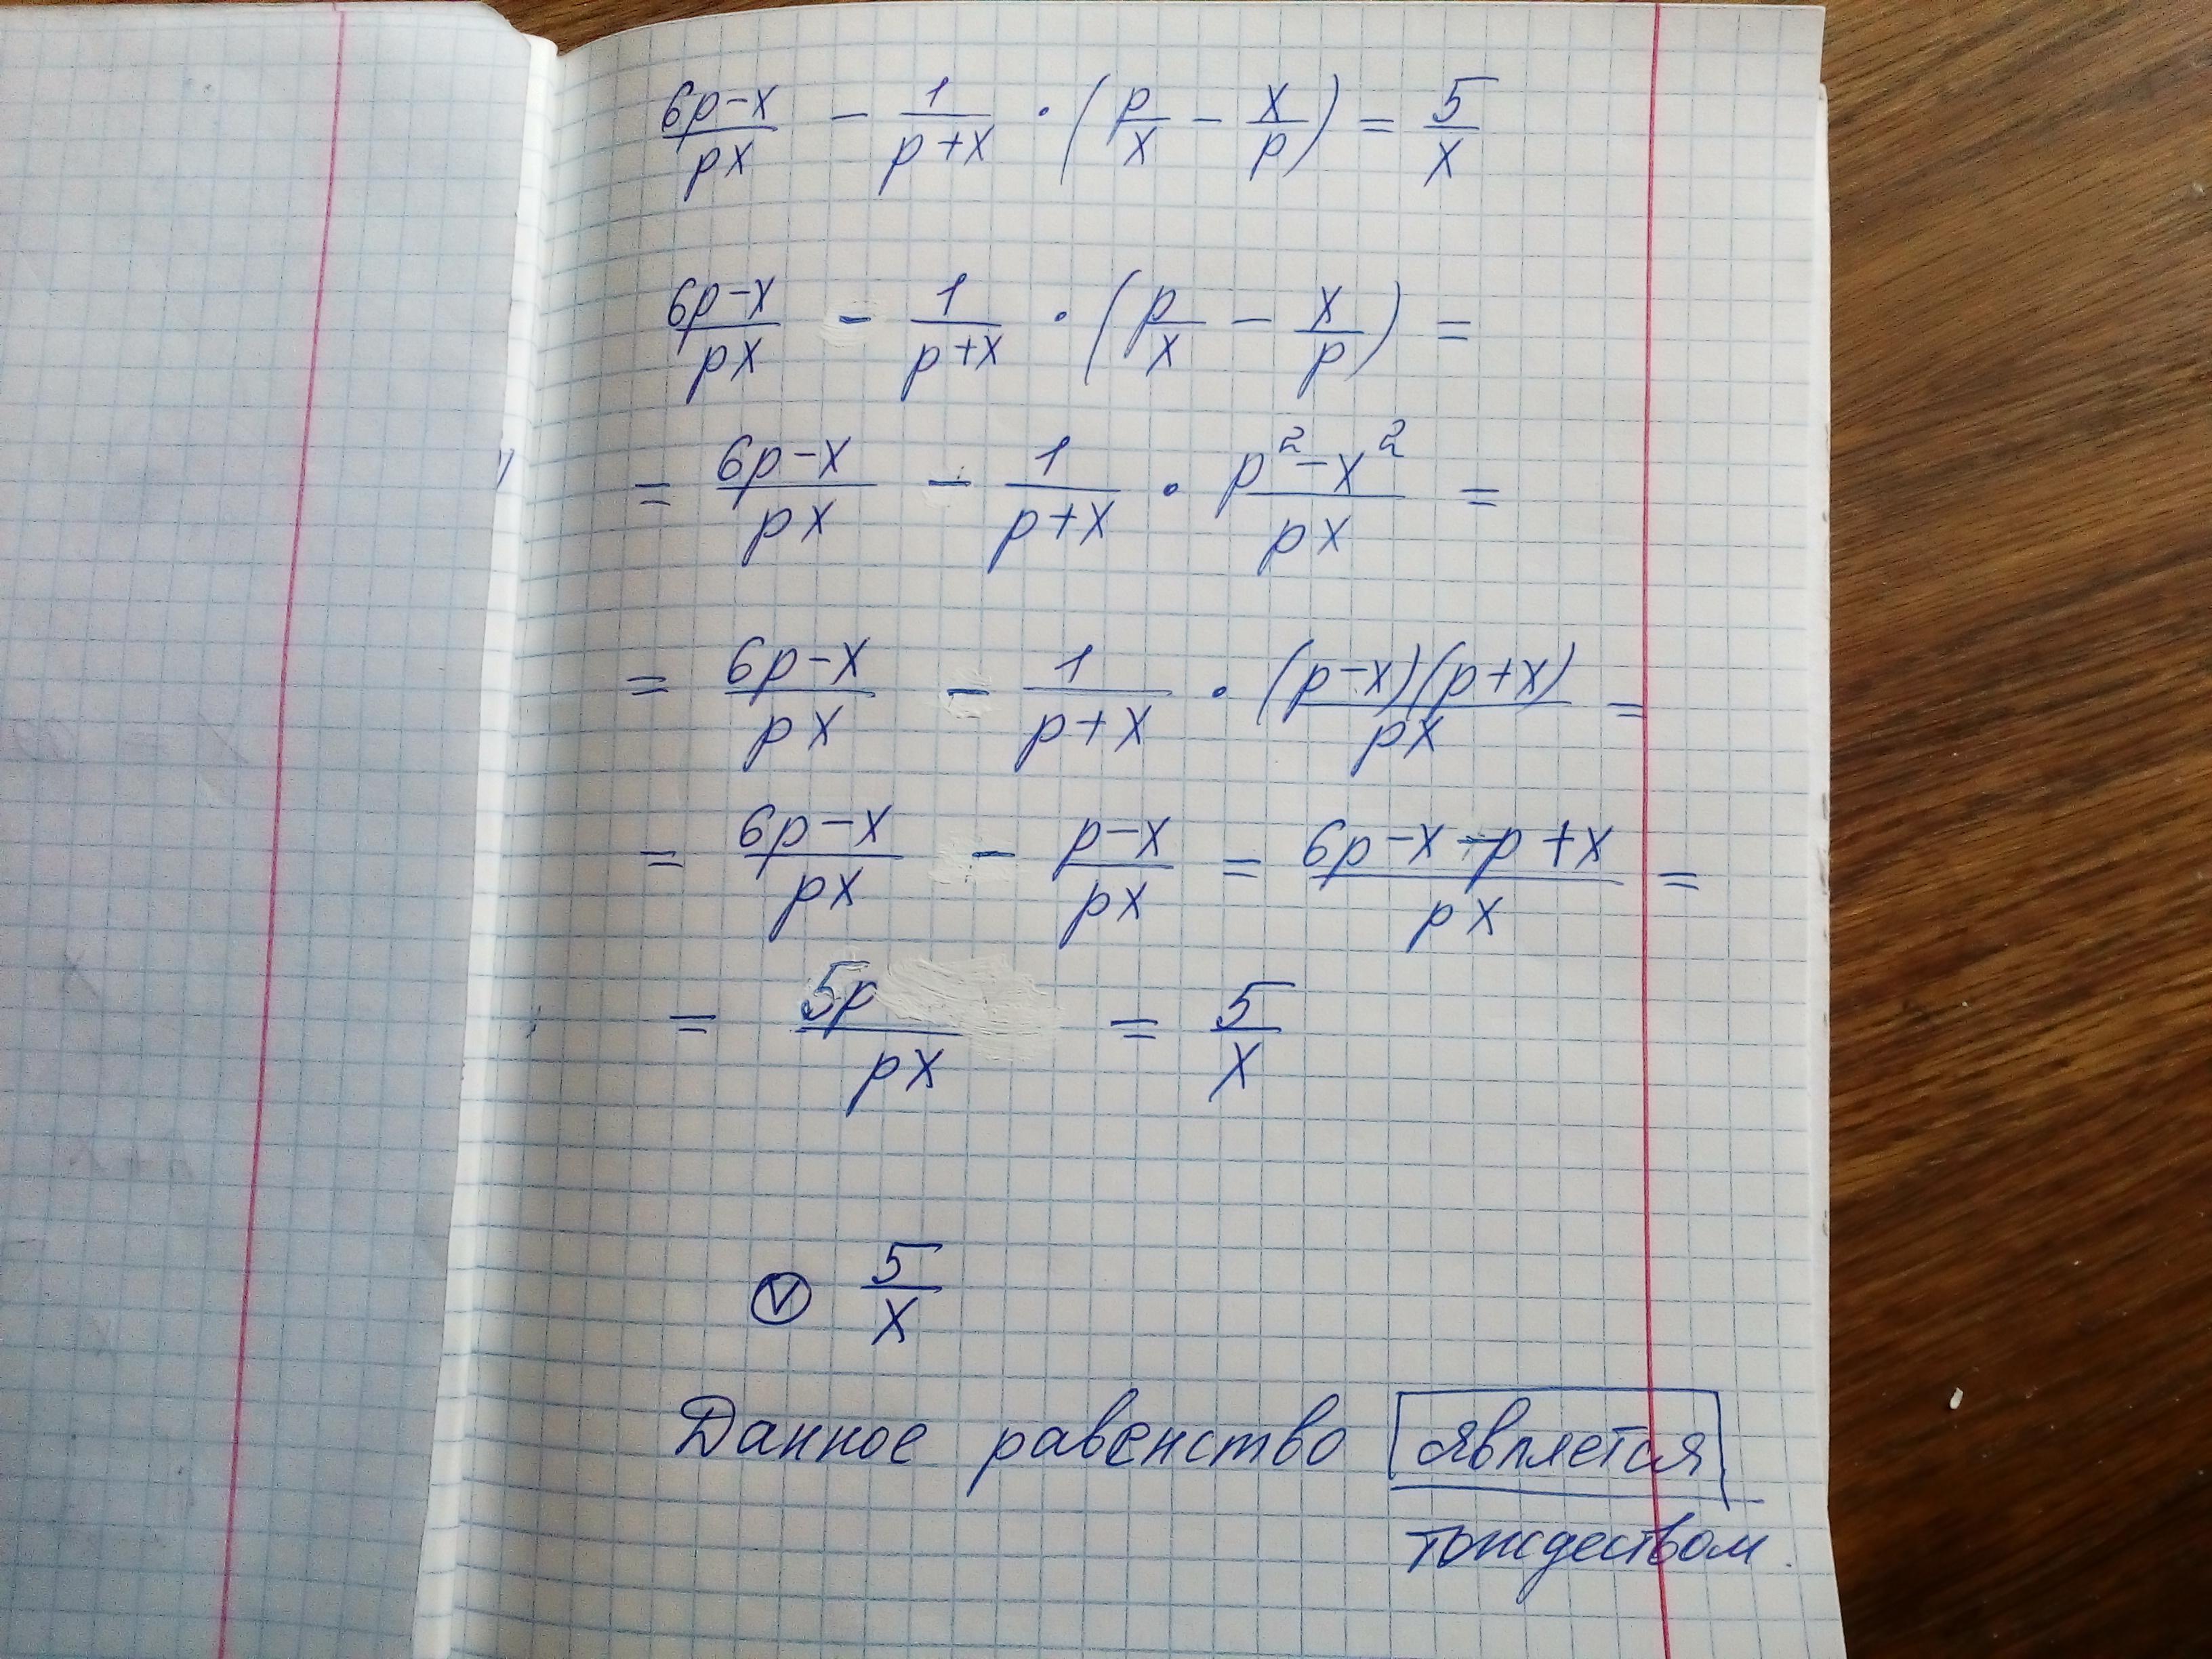 (6p-x)/(px) - 1/(p+x) · (p/x - x/p) = 5/x
(6p-x)/(px) - 1/(p+x) · (p/x - x/p) =
= (6p-x)/(px) - 1/(p+x) · (p²-x²)/(px) =
= (6p-x)/(px) - 1/(p+x) · (p-x)(p+x)/(px) =
= (6p-x)/(px) - (p-x)/(px) = (6p-x-p+x)/(px) =
= 5p/(px) = 5/x
V 5/x
Данное равенство является
тождеством.